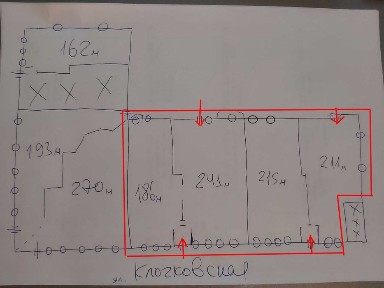 162м
X X X
193м
270м
180м
241м
215м
211м
X X X
ул. Клочковская